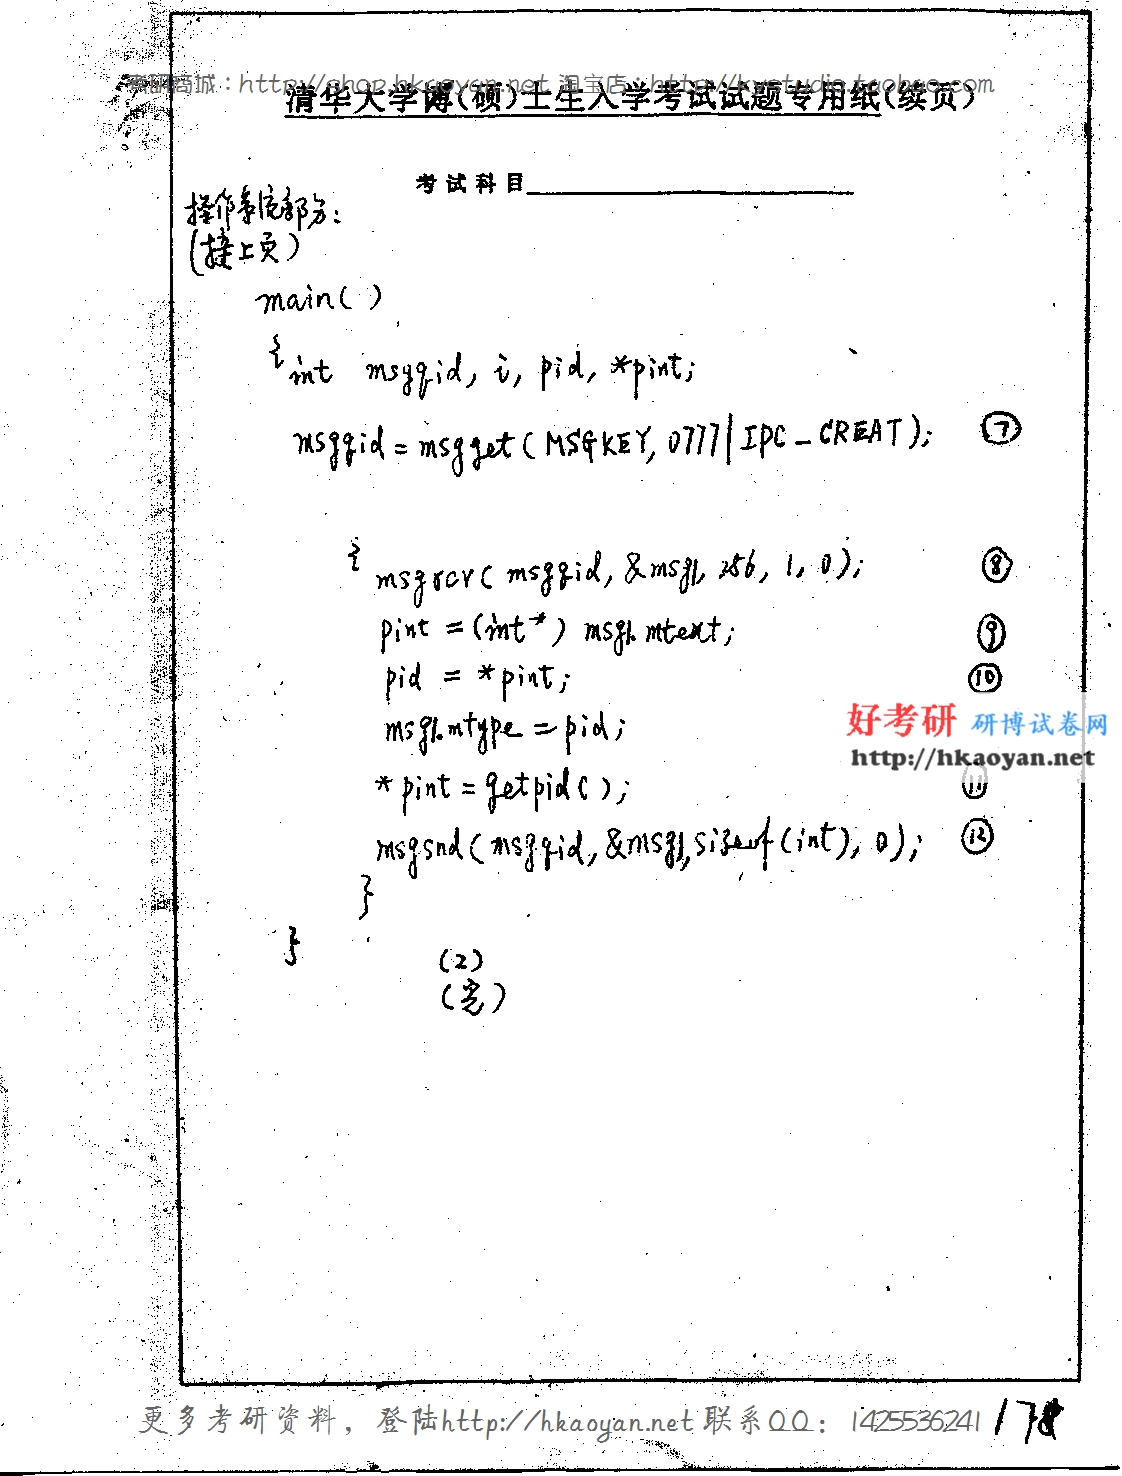 考研商城：http://shop.hkaoyan.net 淘宝店：http://kystudio.taobao.com
清华大学博(硕)士生入学考试试题专用纸(续页)
考试科目
操作系统部分：
(接上页)
main( )
{int msgqid, i, pid, *pint;
msgqid = msgget ( MSGKEY, 0777 | IPC_CREAT); ⑦
{ msgrcv( msgqid, &msg1, 256, 1, 0); ⑧
pint = (int*) msg1.mtext; ⑨
pid = *pint; ⑩
msg1.mtype = pid;
好考研 研博试卷网
http://hkaoyan.net
*pint = getpid( ); ⑪
msgsnd( msgqid, &msg1, sizeof(int), 0); ⑫
}
}
(2)
(完)
更多考研资料，登陆http://hkaoyan.net 联系QQ：1425536241
178